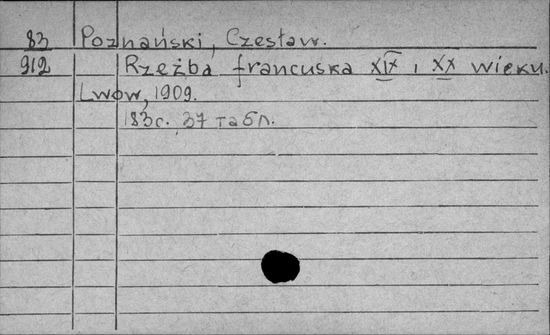 83 Poznański, Czesław.
912 Rzeźba francuska XIX i XX wieku.
Lwów, 1909.
183 с. 37 табл.